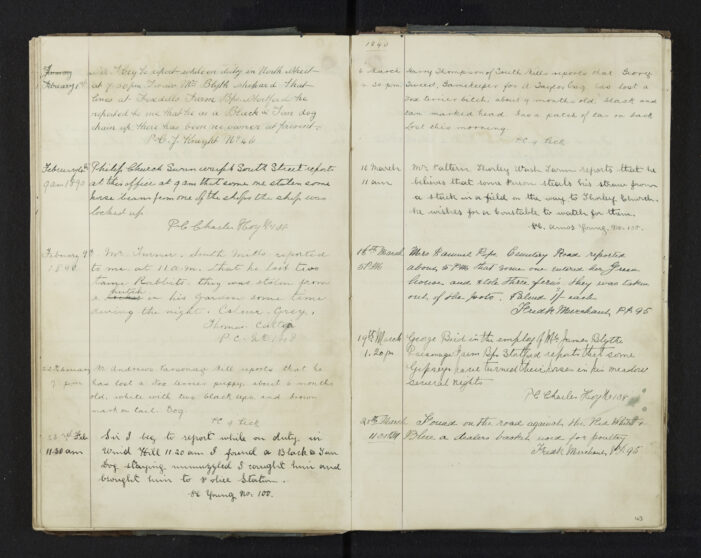 February 1st
Sir I beg to report while on duty in North Street
at 7.30 pm Mr Blyth shepherd that
lives at Twedells Farm Bps Stortford he
reported to me that he as a Black & Tan dog
chain up there has been no owner at present.
P.C. J. Knight No 46
February
9 am 1890
Philip Church Swain South Street report
at this office at 9 am that some one stolen some
horse beans from one of the ships the ship was
locked up
PC Charles Hoy No 138
February 9th
1890
Mr. Turner, South Mills reported
to me, at 11 a.m. that he lost two
tame Rabbits. they was stolen from
a hutch in his garden some time
during the night. Colour, Grey,
Thomas Carter
P.C.
February
7 pm
Andrews Parsonage Mill reports that he
has lost a Fox terrier puppy, about 6 months
old, white with two black ears and brown
mark on tail. Dog
PC 9 Peck
23rd Feb
11.30 am
Sir I beg to report while on duty in
Wind Hill 11 20 am I found a Black & Tan
Dog staying unmuzzled I caught him and
brought him to Police Station.
PC Young No. 100.
1890
6 March
30 pm
Harry Thompson of South Mills reports that George
Gamekeeper for A Taylor Esq has lost a
Fox terrier bitch, about 9 month old, Black and
tan marked head. has a patch of tar on back
Lost this morning.
PC 9 Peck
10 March
11 am
Mr. Pattern Thorley Wash Farm reports that he
believes that some Person steals his straw from
a stack in a field on the way to Thorley Church.
he wishes for a Constable to watch for them.
PC. Amos Young. No. 100.
16th March
5 PM
Miss Hammel Pipe Cemetery Road reported
above, 5 PM that some one entered her Green
house, and stole three ferns they was taken
out of the pots. Valued each
Fredk Merchant, PC 95
19th March
1.20 pm
George Bird in the employ of Mr James Blyth
Parsonage Farm Bps Stortford reports that some
Gypseys have turned their horses in his meadow
several nights
PC Charles Hoy No 138
20th March
Found on the road against the Red White &
Blue a dealers basket used for poultry
Fredk Merchant, PC 95
163